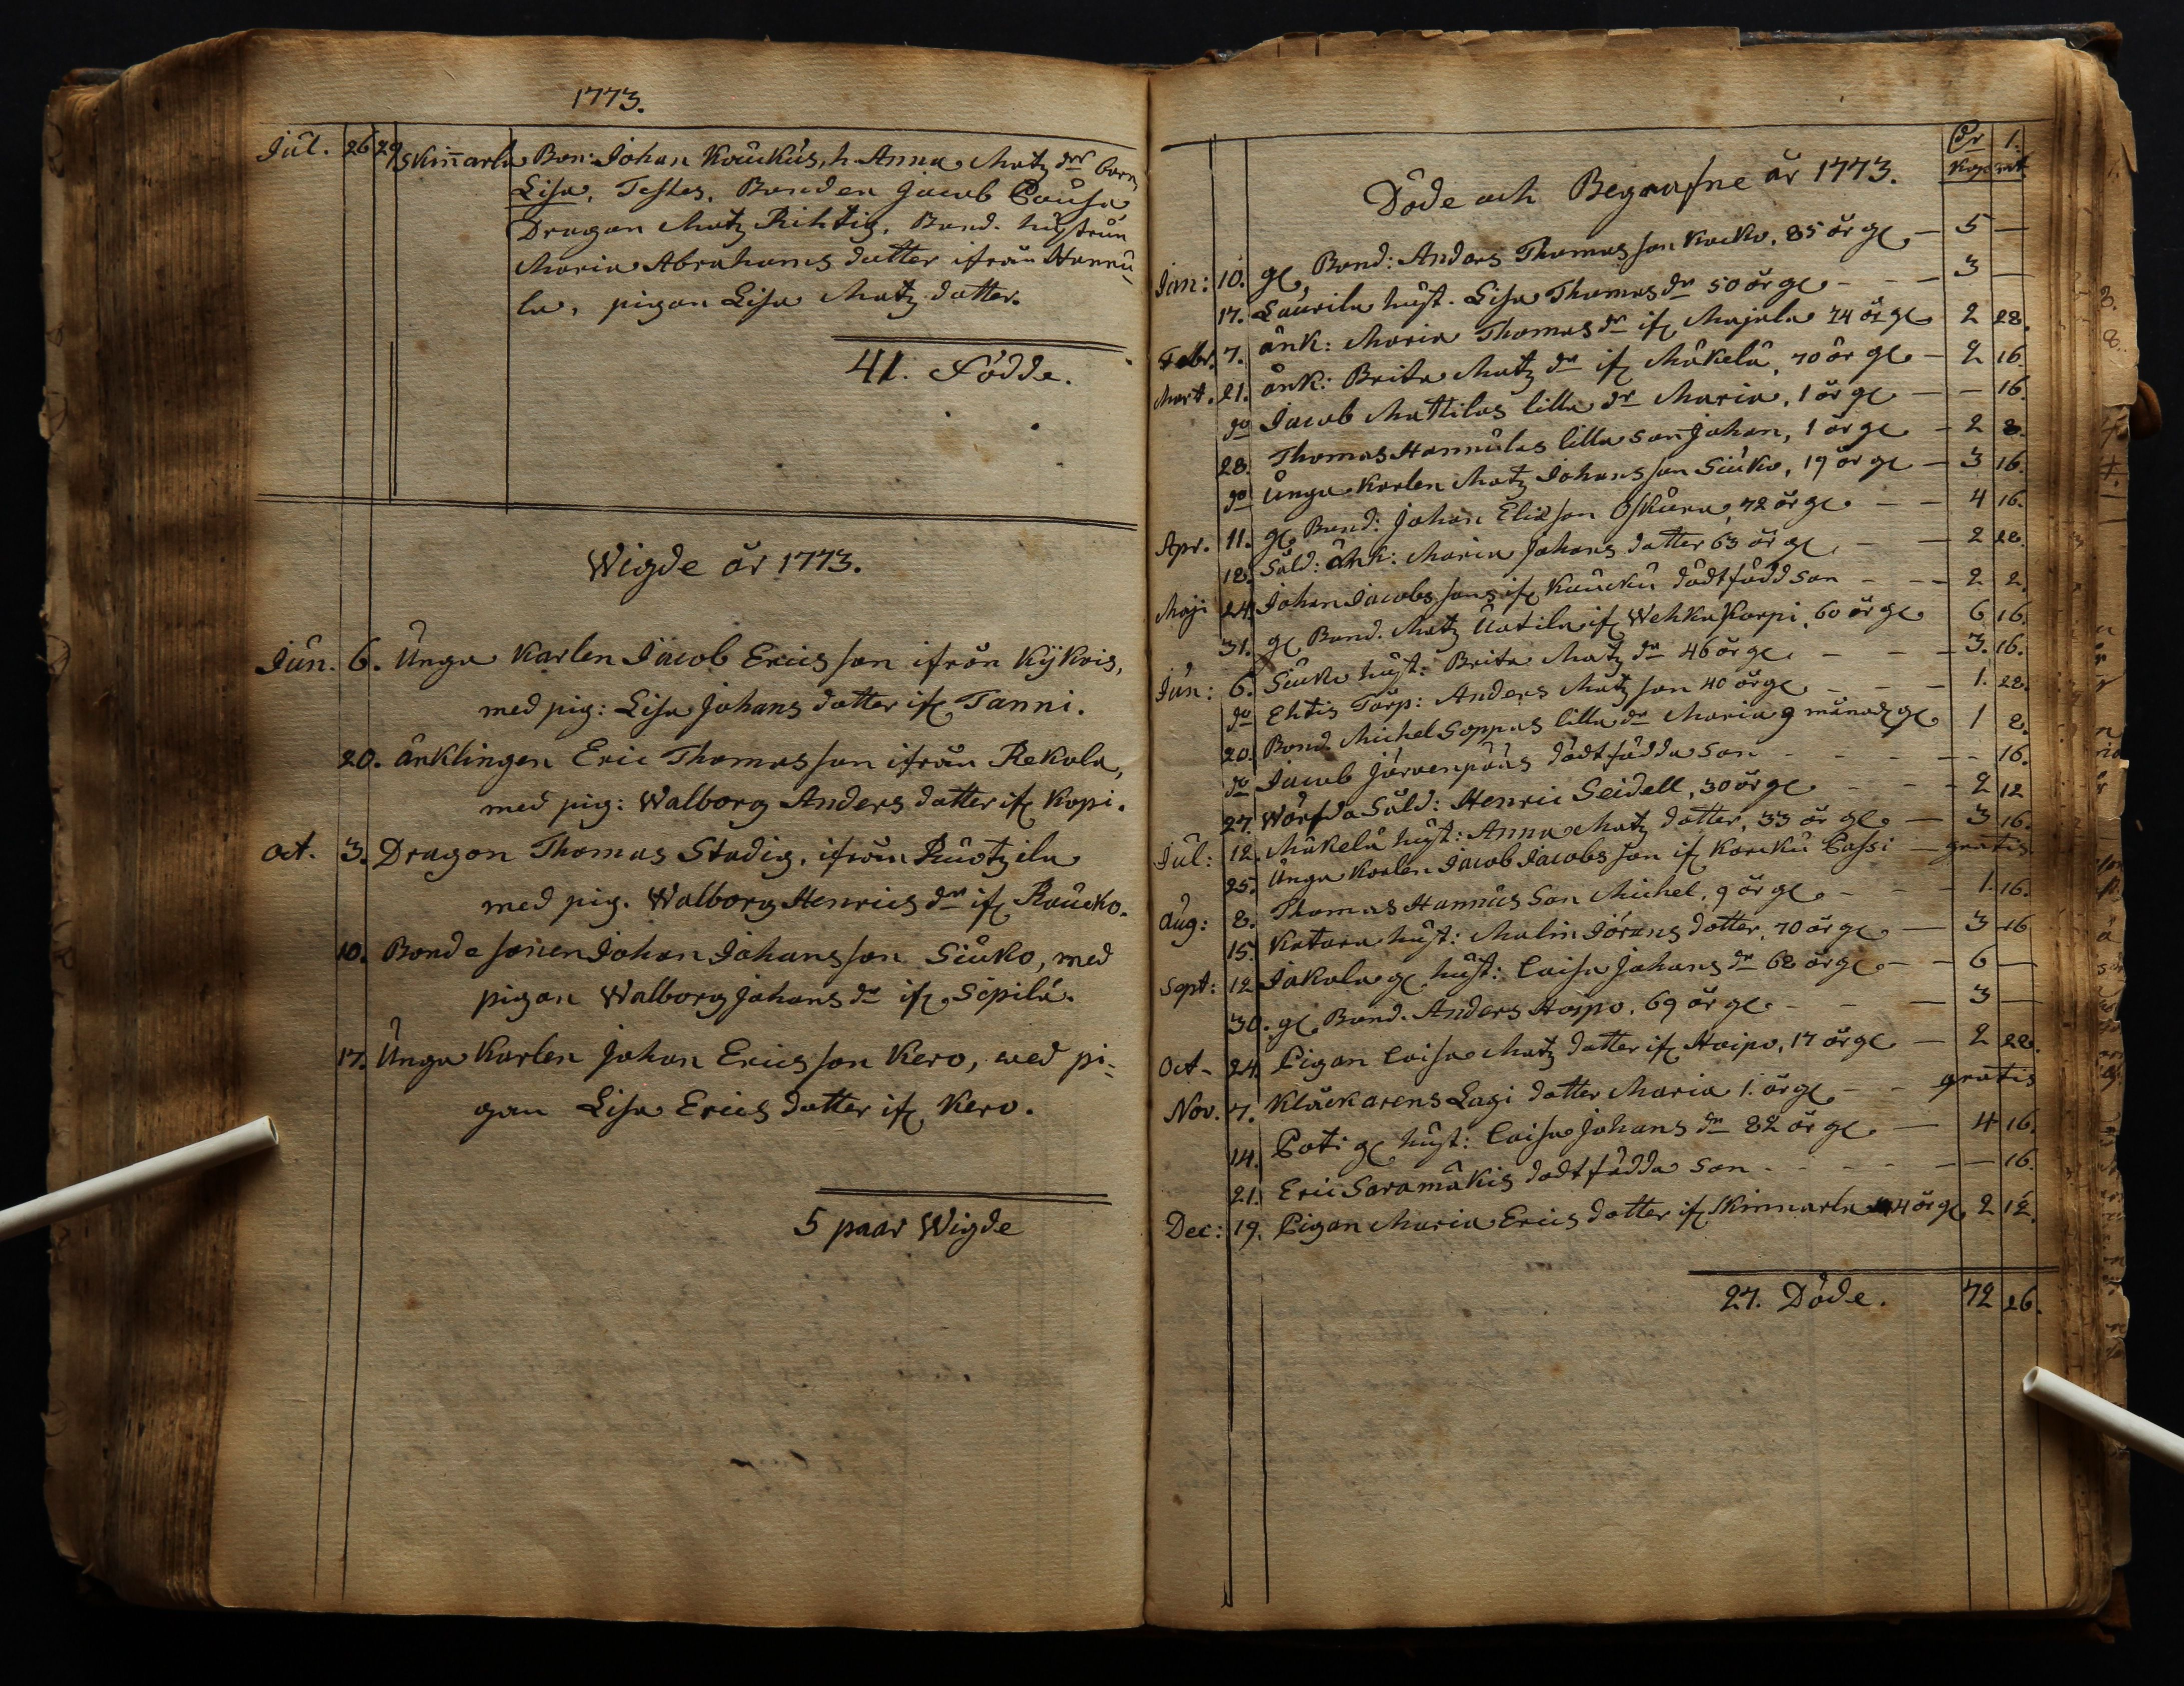 1773.
Jul. 26 29 Skinnarla Bon: Johan Kouckus, h. Anna Matz dr barn
Lisa, Testes, Bonden Jacob Pausa
Dragon Matz Rihtig, Bond. hustrun
Maria Abrahams dotter ifrån Hannu-
la, pigan Lisa Matz dotter.
41. Födde.
Wigde år 1773.
Jun. 6. Unga Karlen Jacob Erics son ifrån Kijkois,
med pig: Lisa Johans dotter if Tanni.
20. änklingen Eric Thomas son ifrån Rekola,
med pig: Walborg Anders dotter if Kopi.
Oct. 3. Dragon Thomas Stadig, ifrån Ruotzila
med pig. Walborg Henrics dr if Roucko.
10. Bonde sonen Johan Johans son Siuko, med
pigan Walborg Johans dr if Sipilä.
17. Unga Karlen Johan Erics son Kero, med pi-
gan Lisa Erics dotter if Kero.
5 paar Wigde
Döde och Begrafne år 1773.
Dr 1.
Kop mt
Jan: 10. gl, Bond: Anders Thomas son Kocko, 85 år gl — 5 —
17. Laurila hust. Lisa Thomas dr 50 år gl - - 3 —
Febr. 7. änk: Maria Thomas dr if Majala 74 år gl 2 28.
Mart. 21. änk: Brita Matz dr if Mäkelä, 70 år gl — 2 16.
do Jacob Mattilas lilla dr Maria, 1 år gl — — 16.
28. Thomas Hannulas lilla son Johan, 1 år gl - 2 8.
do Unga Karlen Matz Johans son Siuko, 19 år gl — 3 16.
Apr. 11. gl Bond: Johan Elias son Oskura, 72 år gl — — 4 16.
18. Sald: änk: Maria Johans dotter 63 år gl, — — 2 28.
Maji 24. Johan Jacobs sons if Koucku dödtfödd son - - - 2 2.
31. gl Bond. Matz Uotila if Wehka Korpi, 60 år gl 6 16.
Jun: 6. Siuko hust: Brita Matz dr 46 år gl. - - - 3. 16.
do Ehtis Torp: Anders Matz son 40 år gl - - - 1. 28.
20. Bond. Michel Soppas lilla dr Maria 9 månad gl 1 2.
do Jacob Järvenpääs dödtfödda son - - - - 16.
27. Wärfda Sald: Henric Seidell, 30 år gl - - - 2 12
Jul: 12. Mäkelä hust: Anna Matz dotter, 33 år gl. — 3 16.
25. Unga Karlen Jacob Jacobs son if Korcku Cassi — gratis
Aug: 8. Thomas Hannus Son Michel, 9 år gl. - - - 1. 16.
15. Katara hust: Malin Jörans dotter, 70 år gl — 3 16
Sept: 12 Jakola gl. hust: Caisa Johans dr 68 år gl - - 6 —
30. gl. Bond. Anders Hoipo. 69 år gl. - - — 3 —
Oct - 24. Pigan Caisa Matz dotter if Hoipo, 17 år gl — 2 28.
Nov. 7. Klåckarens Lagi dotter Maria 1. år gl. - - gratis
14. Poti gl hust: Caisa Johans dr 82 år gl. — 4 16.
21. Eric Saramäkis dödtfödda son - - - - — 16.
Dec: 19. Pigan Maria Erics dotter if Skinnarla 44 år gl 2 12.
27. Döde. 72 26.